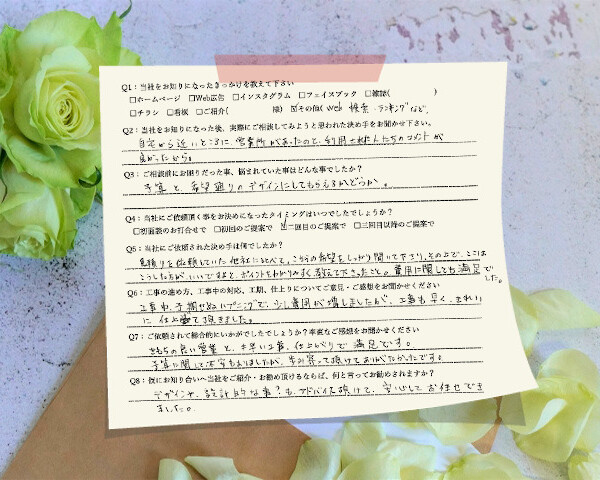 Q1：当社をお知りになったきっかけを教えて下さい
□ホームページ □Web広告 □インスタグラム □フェイスブック □雑誌(　　　)
□チラシ □看板 □ご紹介(　　　様) ☑その他( Web 検索 ランキングなど
Q2：当社をお知りになった後、実際にご相談してみようと思われた決め手をお聞かせ下さい。
自宅から近いところに、営業所があったので、利用された人たちのコメントが
良かったから。
Q3：ご相談前にお困りだった事、悩まれていた事はどんな事でしたか？
予算と、希望通りのデザインにしてもらえるかどうか。
Q4：当社にご依頼頂く事をお決めになったタイミングはいつでしたでしょうか？
□初面談のお打合せで □初回のご提案で ☑二回目のご提案で □三回目以降のご提案で
Q5：当社にご依頼された決め手は何でしたか？
見積りを依頼していた他社に比べて、こちらの希望をしっかり聞いて下り、その上で、ここは
こうした方が、いいですよと、ポイントをわかりやすく教えて下さったこと。費用に関しても満足で
した。
Q6：工事の進め方、工事中の対応、工期、仕上りについてご意見・ご感想をお聞かせください
工事中、予期せぬハプニングで、少し費用が増しましたが、工事も早く、きれい
に仕上げて頂きました。
Q7：ご依頼されて総合的にいかがでしたでしょうか？率直なご感想をお聞かせください
きもちの良い営業と、工事、仕上がりで満足です。
予算に関して不安もありましたが、歩み寄って頂けてありがたかったです。
Q8：仮にお知り合いへ当社をご紹介・お勧め頂けるならば、何と言ってお勧めされますか？
デザインや、設計的な事？も、アドバイス頂けて、安心してお任せでき
ました。